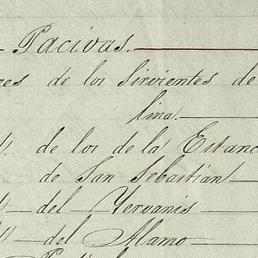 Pacivas.
res de los Sirvientes de
lina.
de los de la Estanc
de San Sebastian
del Yervanis
del Alamo